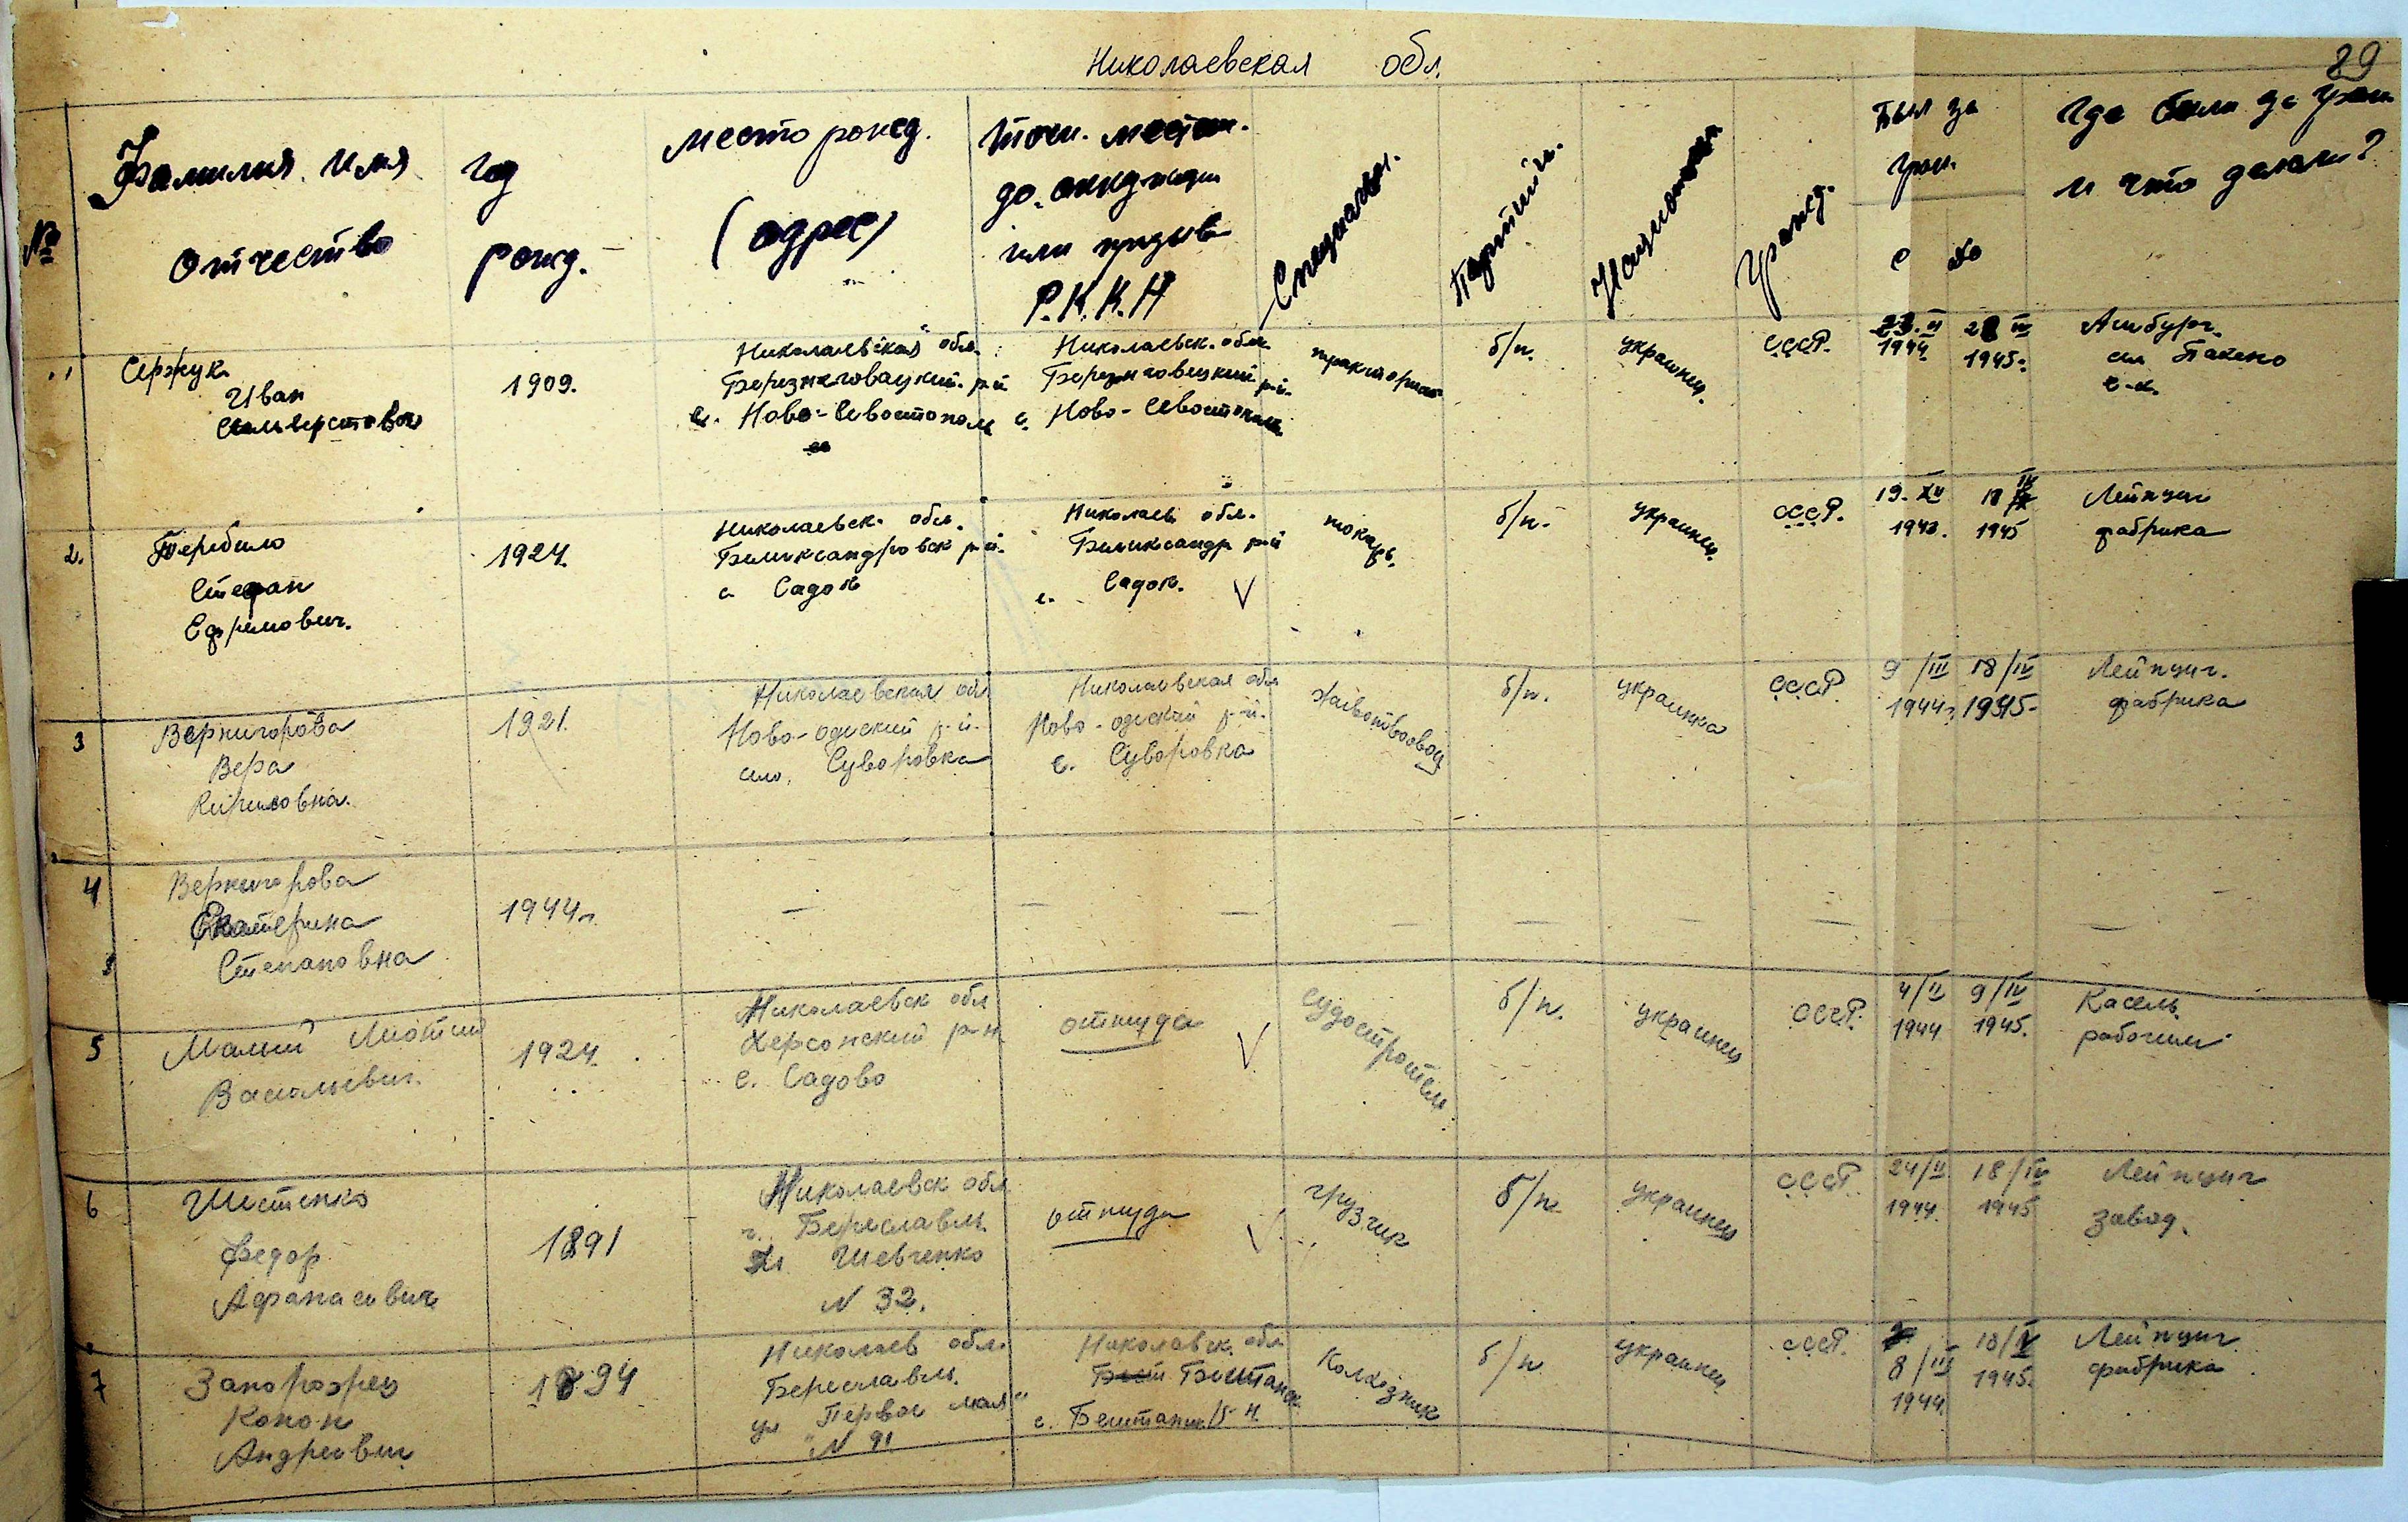 Николаевская обл.
89
№
Фамилия имя
отчество
год
рожд.
место рожд.
(адрес)
до оккупации
или призыва
Р.К.К.Н
Специальн.
Партийн.
Национальн
Гражд.
Был за
гран.
с до
Где были за гран
и что делали?
1
Сержук
Иван
Сельверстович
1909.
Николаевская обл.
Березнеговацкий р-й
с. Ново-Севостополь
Николаевск. обл.
Березнеговецкий р-й.
с. Ново-Севостополь
б/п.
украинец.
СССР.
1944
1945.
с-х.
2.
Теребило
Стефан
Ефимович.
1924.
Николаевск. обл.
Велико­ксандровск р-й.
с Садок
Николаев обл.
Великсандр р-й
с. Садок. V
токарь.
б/п.
украинец.
СССР.
19. XII
1943.
18 IV
1945
Лейпциг
фабрика
3
Вернигорова
Вера
Кириловна.
1921.
Николаевская обл
Ново-одеский р-й.
село. Суворовка
Николаевская обл
Ново-одеский р-й.
с. Суворовка
б/п.
украинка
СССР
9/III
1944г.
18/IV
1945-
Лейпциг.
фабрика
4
Вернигорова
Екатерина
Степановна
1944г.
— — — — — — — —
5
Малий
Васильевич.
1924.
Николаевск обл
Херсонский р-н
с. Садово
оттуда V
судостроитель
б/п.
украинец
СССР.
4/II
1944
9/IV
1945.
Касель
рабочим.
6
Шестенко
Федор
Афанасевич
1891
Николаевск обл
г. Береславль
Ул Шевченко
N 32.
оттуда V
грузчик
б/п.
украинец
СССР.
24/II
1944.
18/IV
1945
Лейпциг
завод.
7
Запорожец
Конон
Андреевич
1894
Николаев обл.
Береславль.
ул "Первое мая"
N 91
Николавск. обл
Баштанск
Колхозник
б/п
украинец
СССР.
8/III
1944
1945.
Лейпциг
фабрика